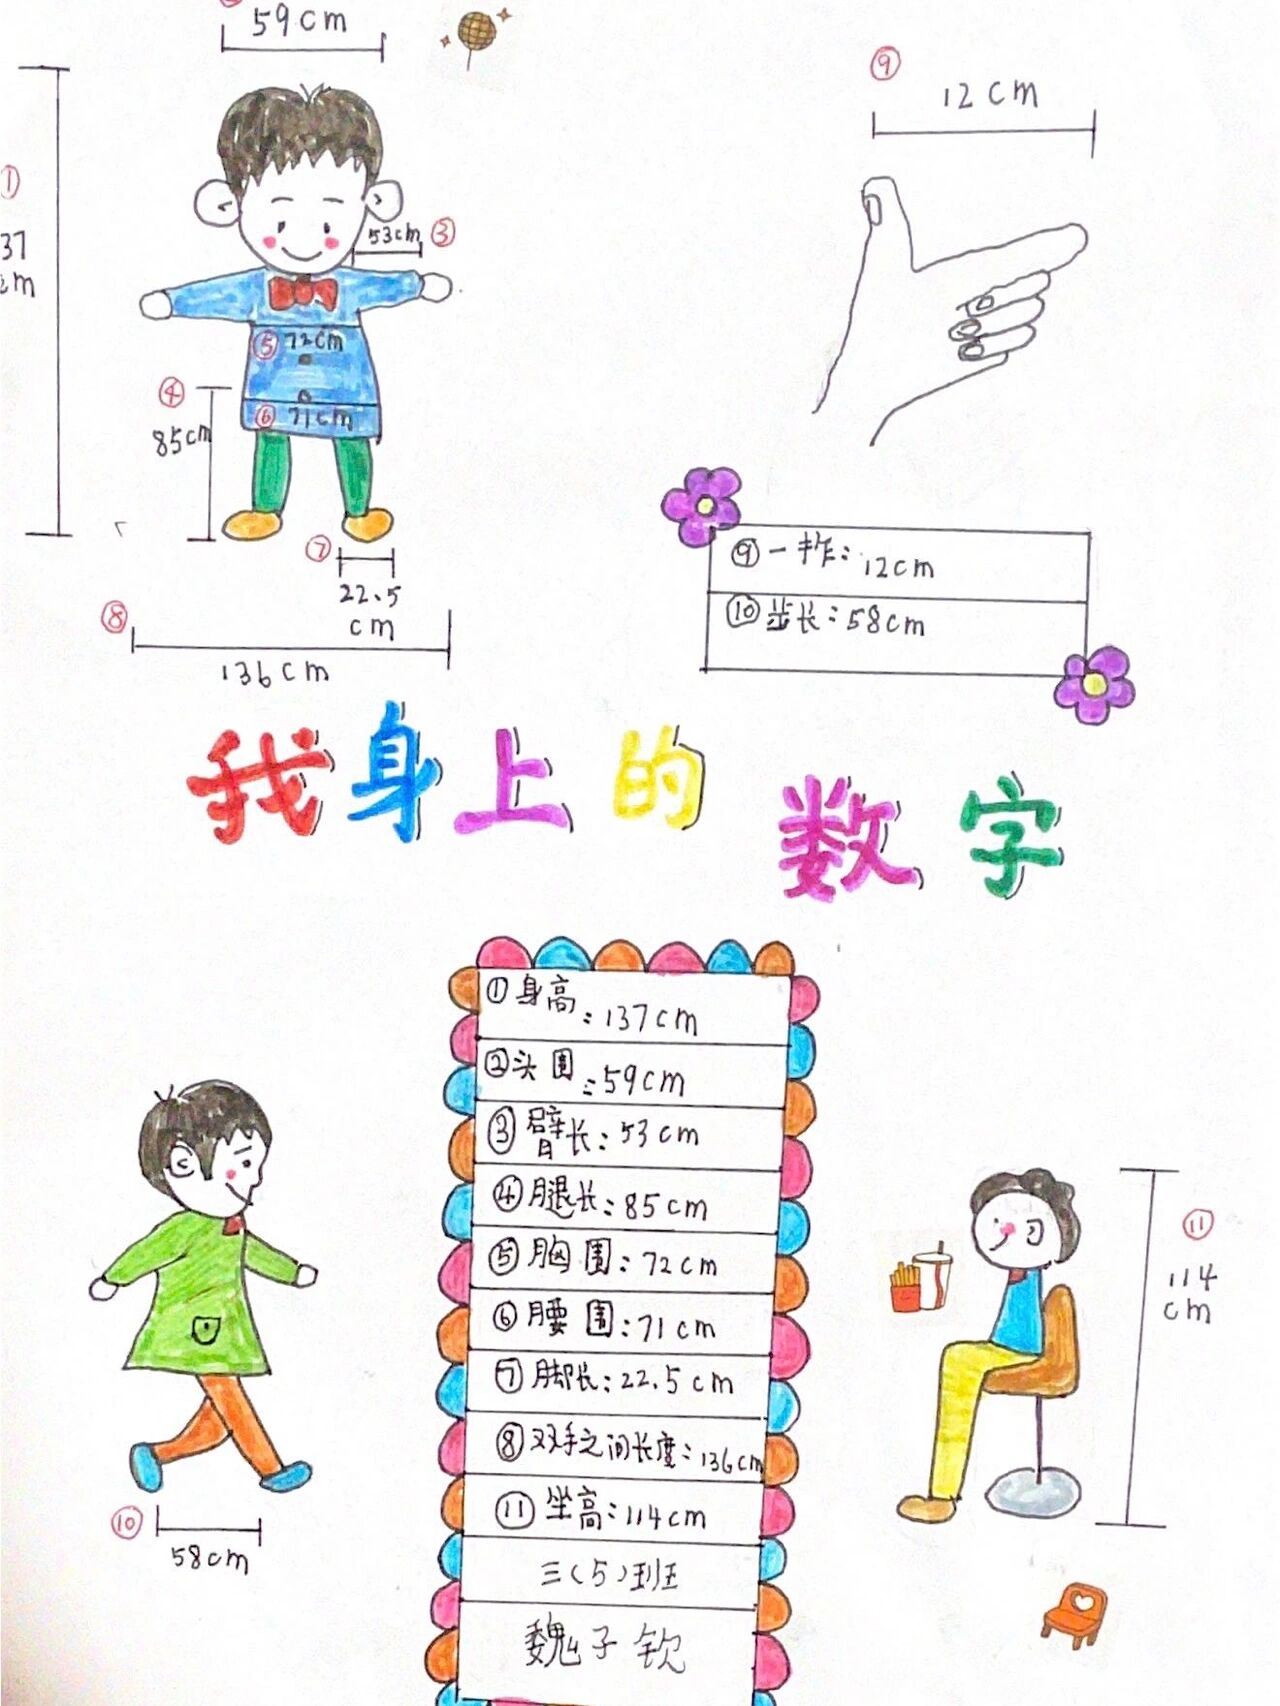 59cm
①
37
cm
53cm ③
⑤ 72cm
④
85cm
⑥ 71cm
⑦
22.5
cm
⑧
136cm
⑨
12cm
⑨一拃：12cm
⑩步长：58cm
我身上的数字
①身高：137cm
②头围：59cm
③臂长：53cm
④腿长：85cm
⑤胸围：72cm
⑥腰围：71cm
⑦脚长：22.5cm
⑧双手之间长度：136cm
⑪坐高：114cm
三（5）班
魏子钦
⑩
58cm
⑪
114
cm